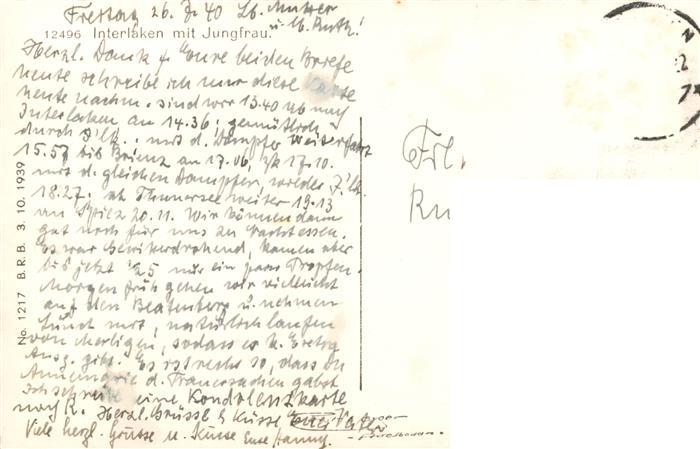 Freitag 26. 7. 40 Lb. Mutter
u. lb. Ruth!
12496 Interlaken mit Jungfrau.
Herzl. Dank f. Eure beiden Briefe
heute schreibe ich nur diese Karte
heute nachm. sind wir 13.40 ab nach
Interlaken an 14.36. gemütlich
durch J'lk., mit d. Dampfer Weiterfahrt
15.57 bis Brienz an 17.06,
mit d. gleichen Dampfer, wieder J'lk.
18.27. ab Thunersee weiter 19.13
an Spiez 20.11. Wir können dann
gut noch für uns zu Nacht essen.
Es war gewitterdrohend, kamen aber
bis jetzt nur ein paar Tropfen.
Morgen früh gehen wir vielleicht
auf den Beatenberg u. nehmen
Lunch mit, natürlich laufen
von Merligen, sodass es k. Extra
Ausg. gibt. Es ist recht so, dass Du
Annemarie d. Trauersachen gabst
Ich schreibe eine Kondolenzkarte
nach R. Herzl. Grüsse & Küsse Euer Vater
Viele herzl. Grüsse u. Küsse Eure Hanny.
No. 1217 B.R.B. 3. 10. 1939
Frl.
Ru